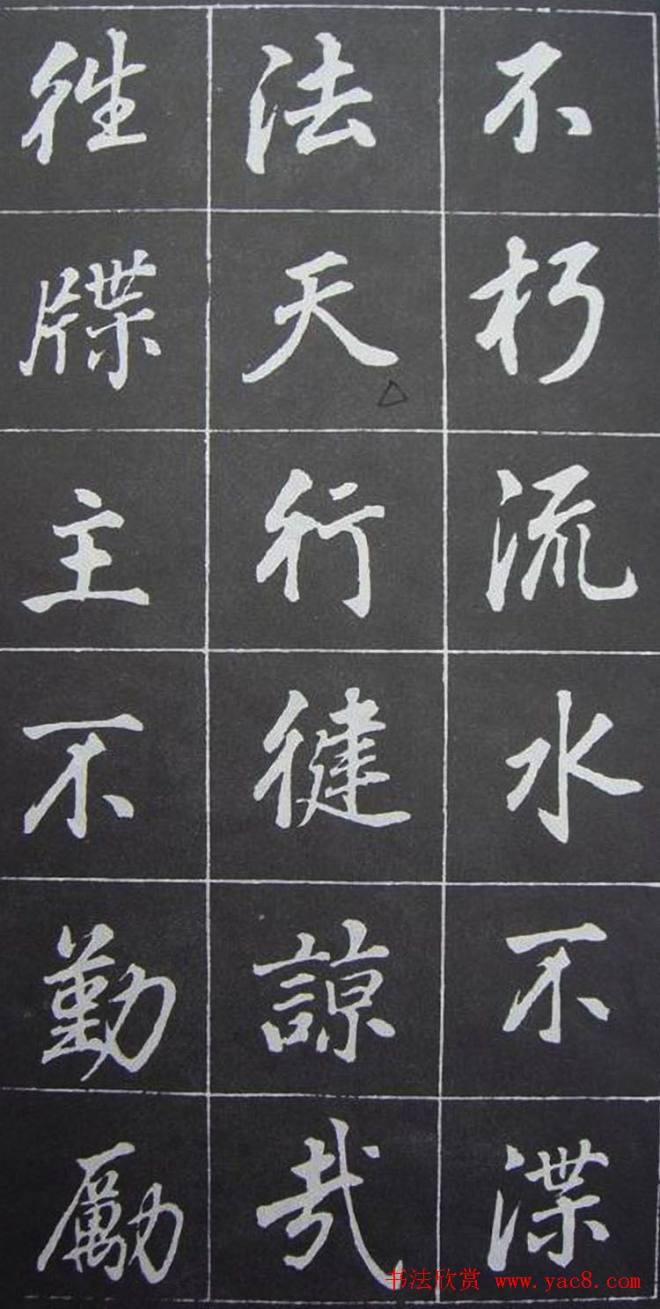 不朽流水不渫
法天行徤諒哉
徃牒主不勤勵
书法欣赏 www.yac8.com